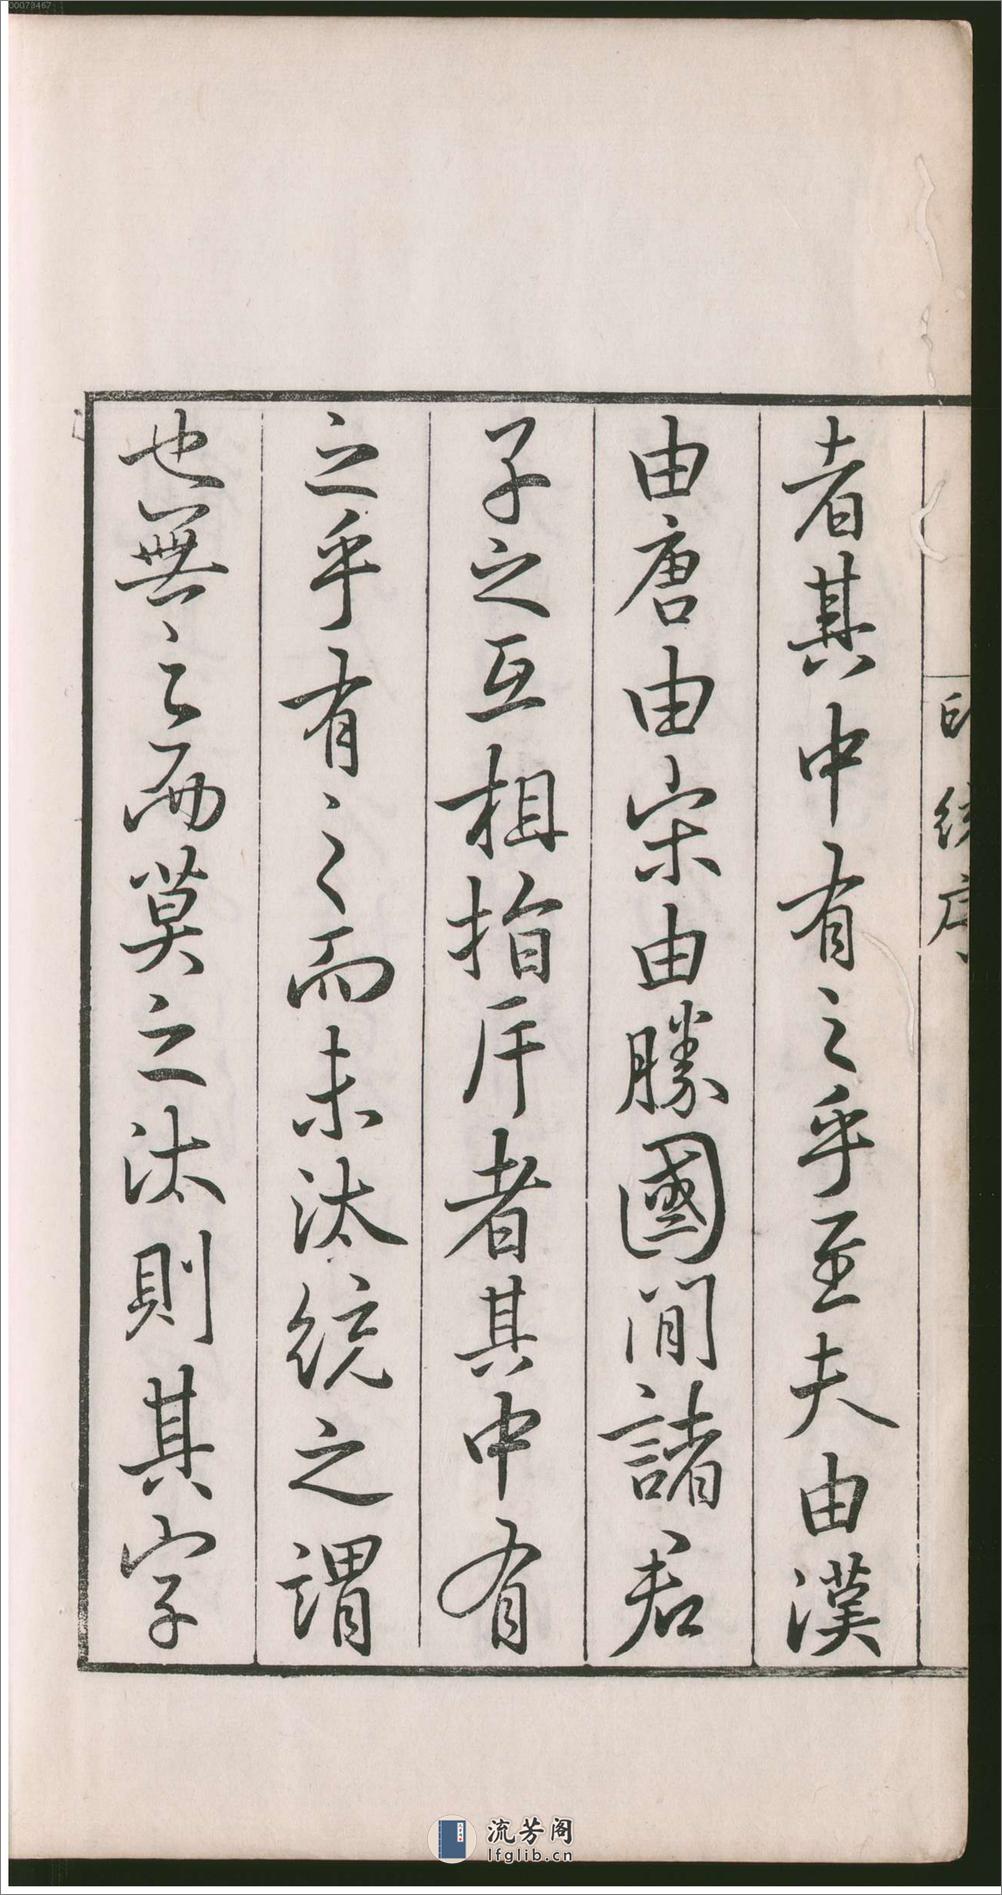 00073467
印統序
者其中有之乎至夫由漢
由唐由宋由勝國間諸君
子之互相指斥者其中有
之乎有之而未汰統之謂
也無之而莫之汰則其字
流芳阁
lfglib.cn